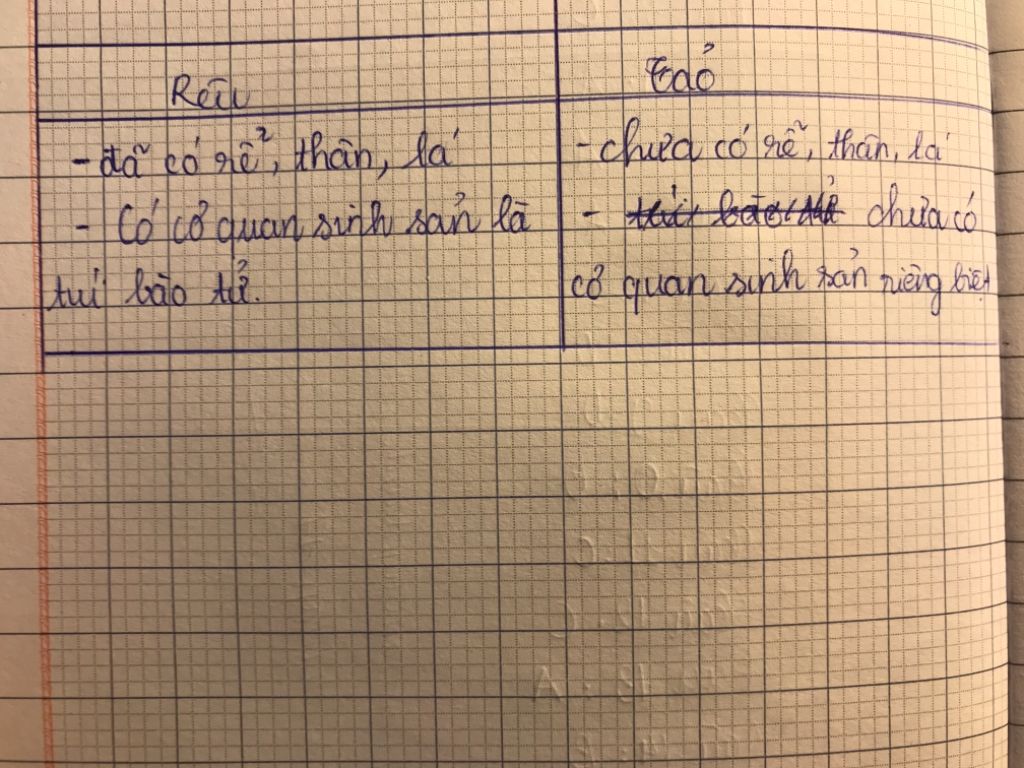 Rêu
Tảo
- đã có rễ, thân, lá
- Có cơ quan sinh sản là
túi bào tử.
- chưa có rễ, thân, lá
- túi bào tử chưa có
cơ quan sinh sản riêng biệt